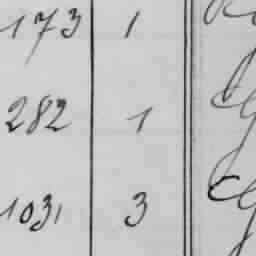 173 1
282 1
1031 3